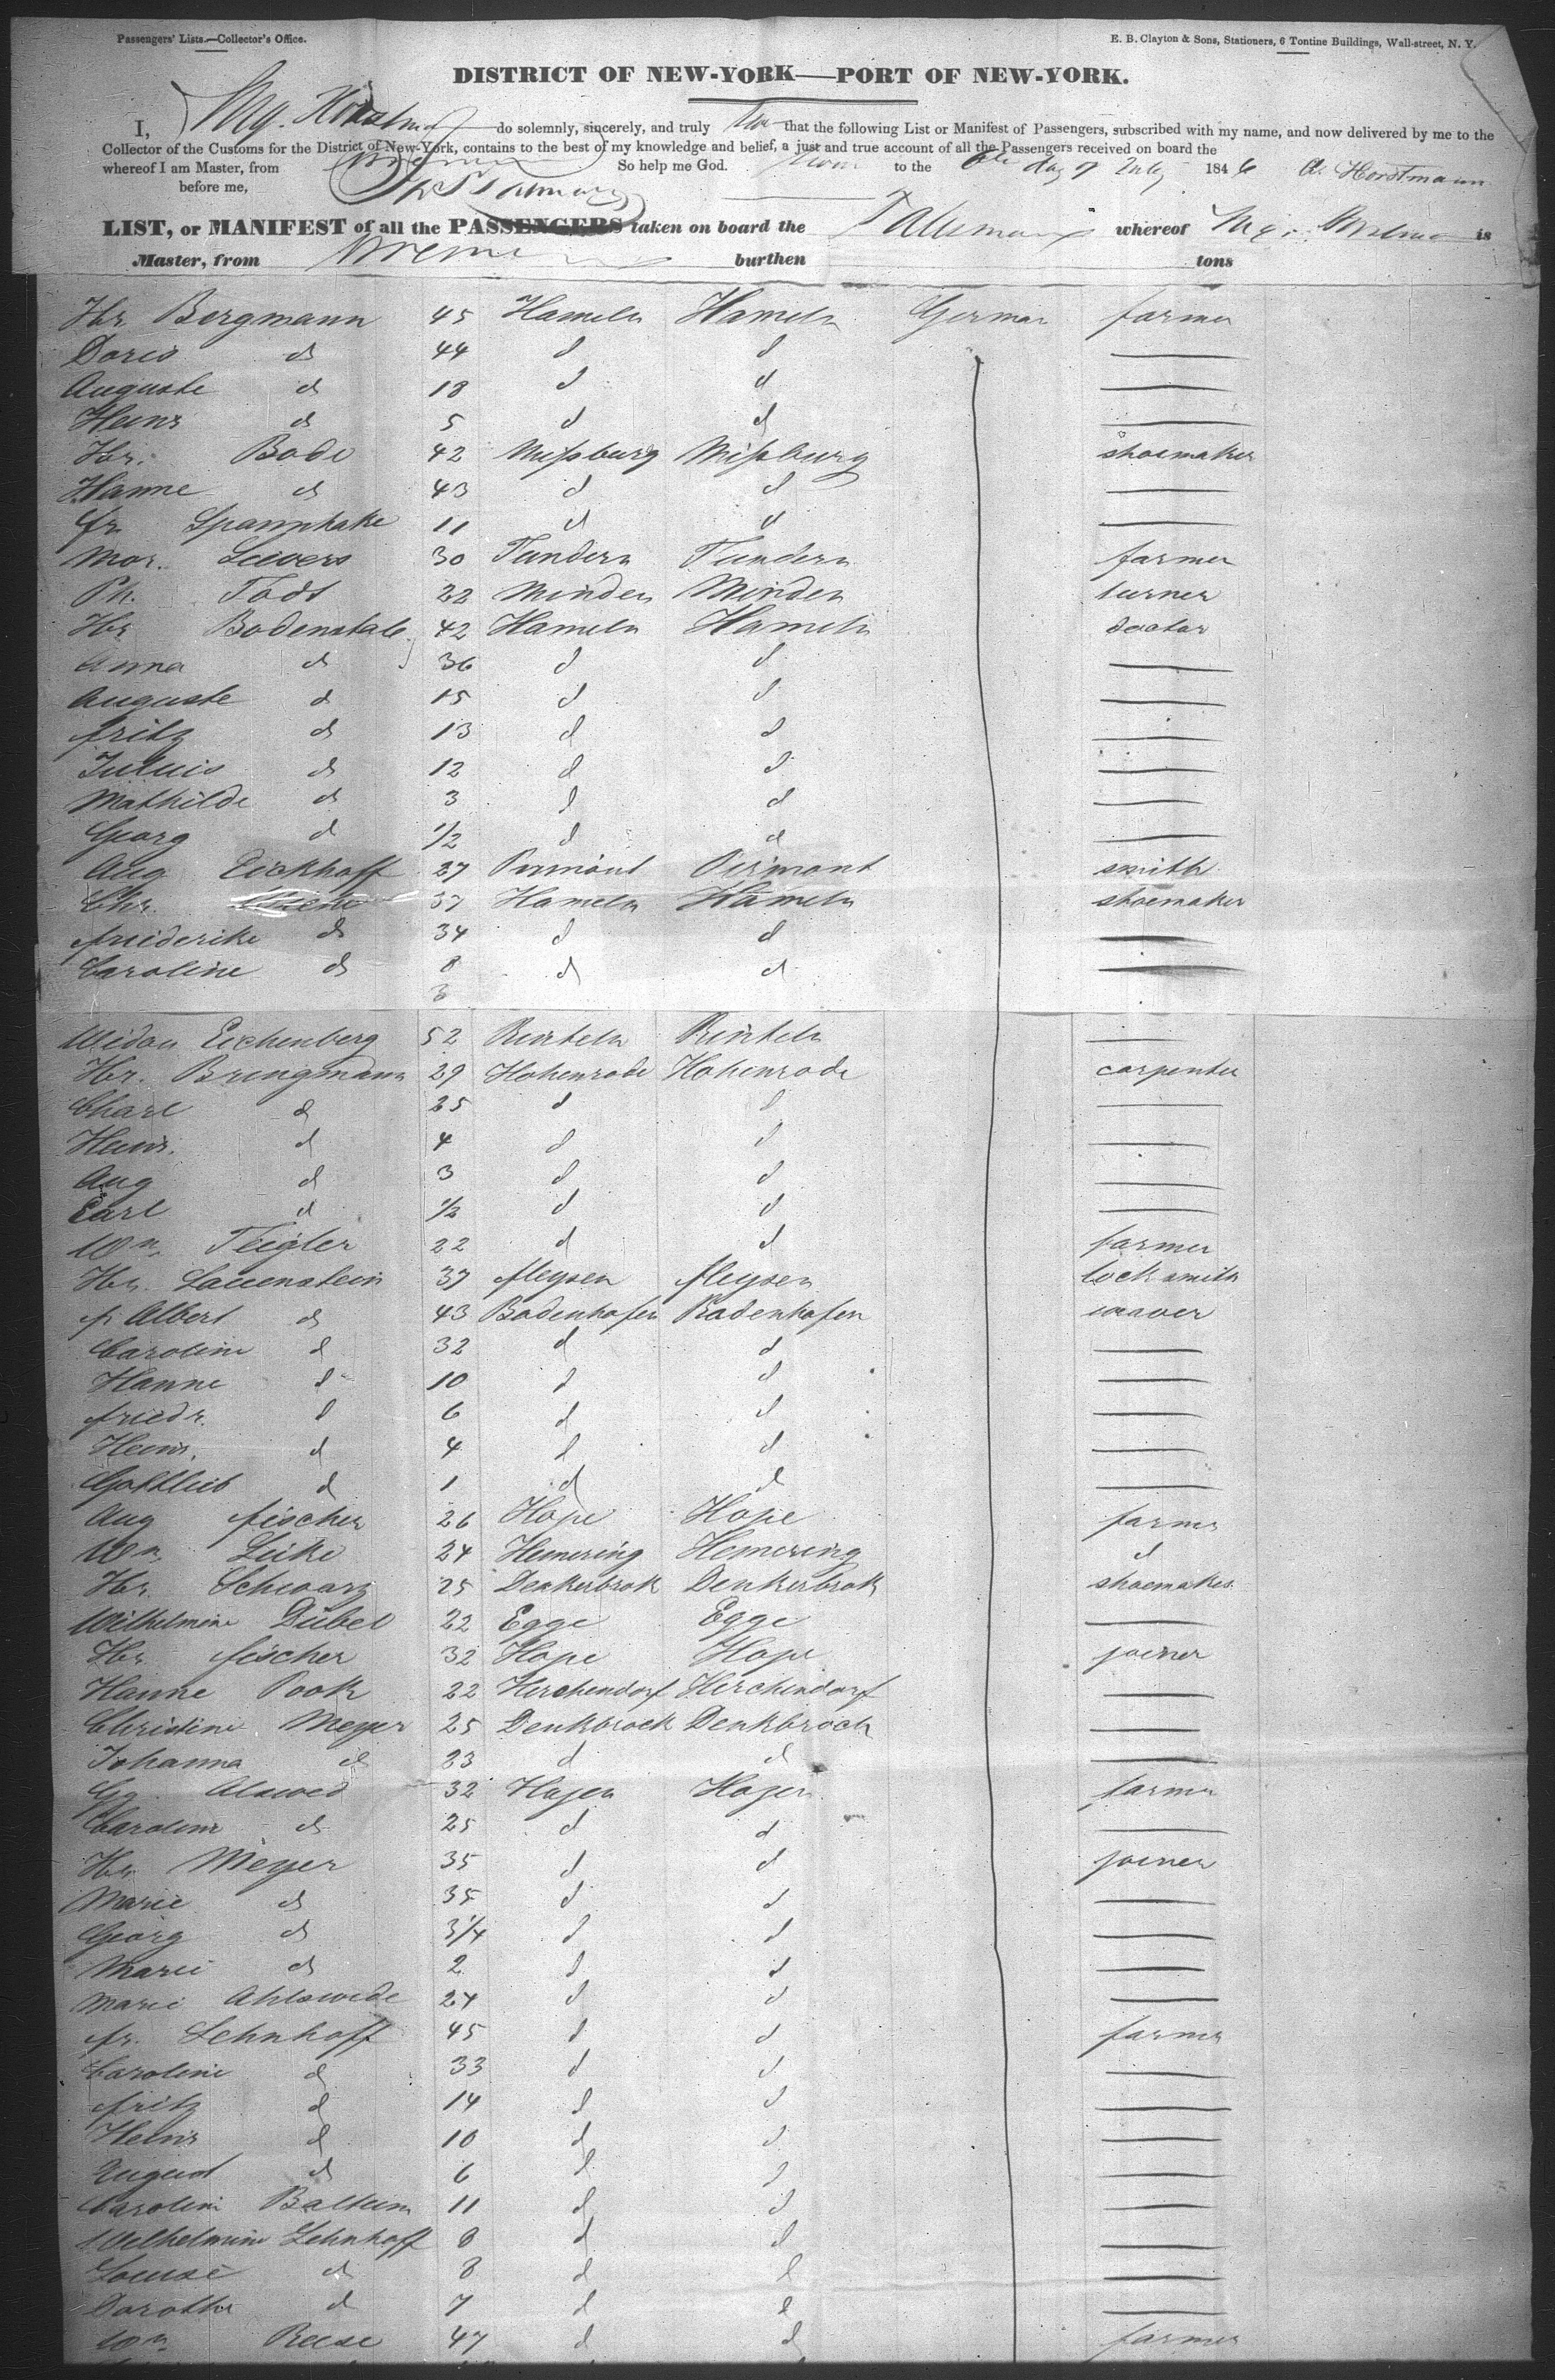 Passengers' Lists.—Collector's Office. E. B. Clayton & Sons, Stationers, 6 Tontine Buildings, Wall-street, N. Y.
DISTRICT OF NEW-YORK—PORT OF NEW-YORK.
I, do solemnly, sincerely, and truly that the following List or Manifest of Passengers, subscribed with my name, and now delivered by me to the
Collector of the Customs for the District of New-York, contains to the best of my knowledge and belief, a just and true account of all the Passengers received on board the
whereof I am Master, from Bremen So help me God. to the 6th day of July 1846 A. Horstmann
before me,
LIST, or MANIFEST of all the PASSENGERS taken on board the whereof is
Master, from Bremen burthen tons
Hr Bergmann 45 Hameln Hameln German farmer
Doris d 44 d d
Auguste d 18 d d
Heinr d 5 d d
Hr. Bode 42 Mißburg Mißburg shoemaker
Hanne d 43 d d
fr Spannhake 11 d d
Mor. Seevers 30 Tundern Tundern farmer
Ph. Todt 22 Minden Minden turner
Hr Bodenstab 42 Hameln Hameln doctor
Anna d 36 d d
Auguste d 15 d d
fritz d 13 d d
Julius d 12 d d
Mathilde d 3 d d
Georg d 1/2 d d
Aug Eickhoff 27 Pirmont Pirmont smith
Chr. 37 Hameln Hameln shoemaker
friederike d 34 d d
Caroline d 8 d d
3
Widow Eichenberg 52 Rinteln Rinteln
Hr. Bringmann 29 Hohenrode Hohenrode carpenter
Charl d 25 d d
Heinr. d 4 d d
Aug d 3 d d
Carl d 1/2 d d
Wm Teigler 22 d d farmer
Hr. Lauenstein 37 locksmith
fr Albert d 43 Badenhafen Badenhafen weaver
Caroline d 32 d d
Hanne d 10 d d
friedr. d 6 d d
Heinr. d 4 d d
Gottlieb d 1 d d
Aug fischer 26 Hope Hope farmer
Wm Leike 24 Hemering Hemering d
Hr. Schwarz 25 Denkerbrok Denkerbrok shoemaker
Wilhelmine Dübel 22 Egge Egge
Hr fischer 32 Hope Hope joiner
Hanne Pook 22 Herchendorf Herchendorf
Christine Meyer 25 Denkbrock Denkbrock
Johanna d 23 d d
Gg. 32 Hagen Hagen farmer
Caroline d 25 d d
Hr Meyer 35 d d joiner
Marie d 35 d d
Georg d 3/4 d d
Marie d 2 d d
Marie Ahlswede 24 d d
fr. Lehnhoff 45 d d farmer
Caroline d 33 d d
fritz d 14 d d
Heinr d 10 d d
August d 6 d d
Caroline 11 d d
Wilhelmine Lehnhoff 8 d d
Louise d 8 d d
Dorothe d 7 d d
Wm Reese 47 d d farmer